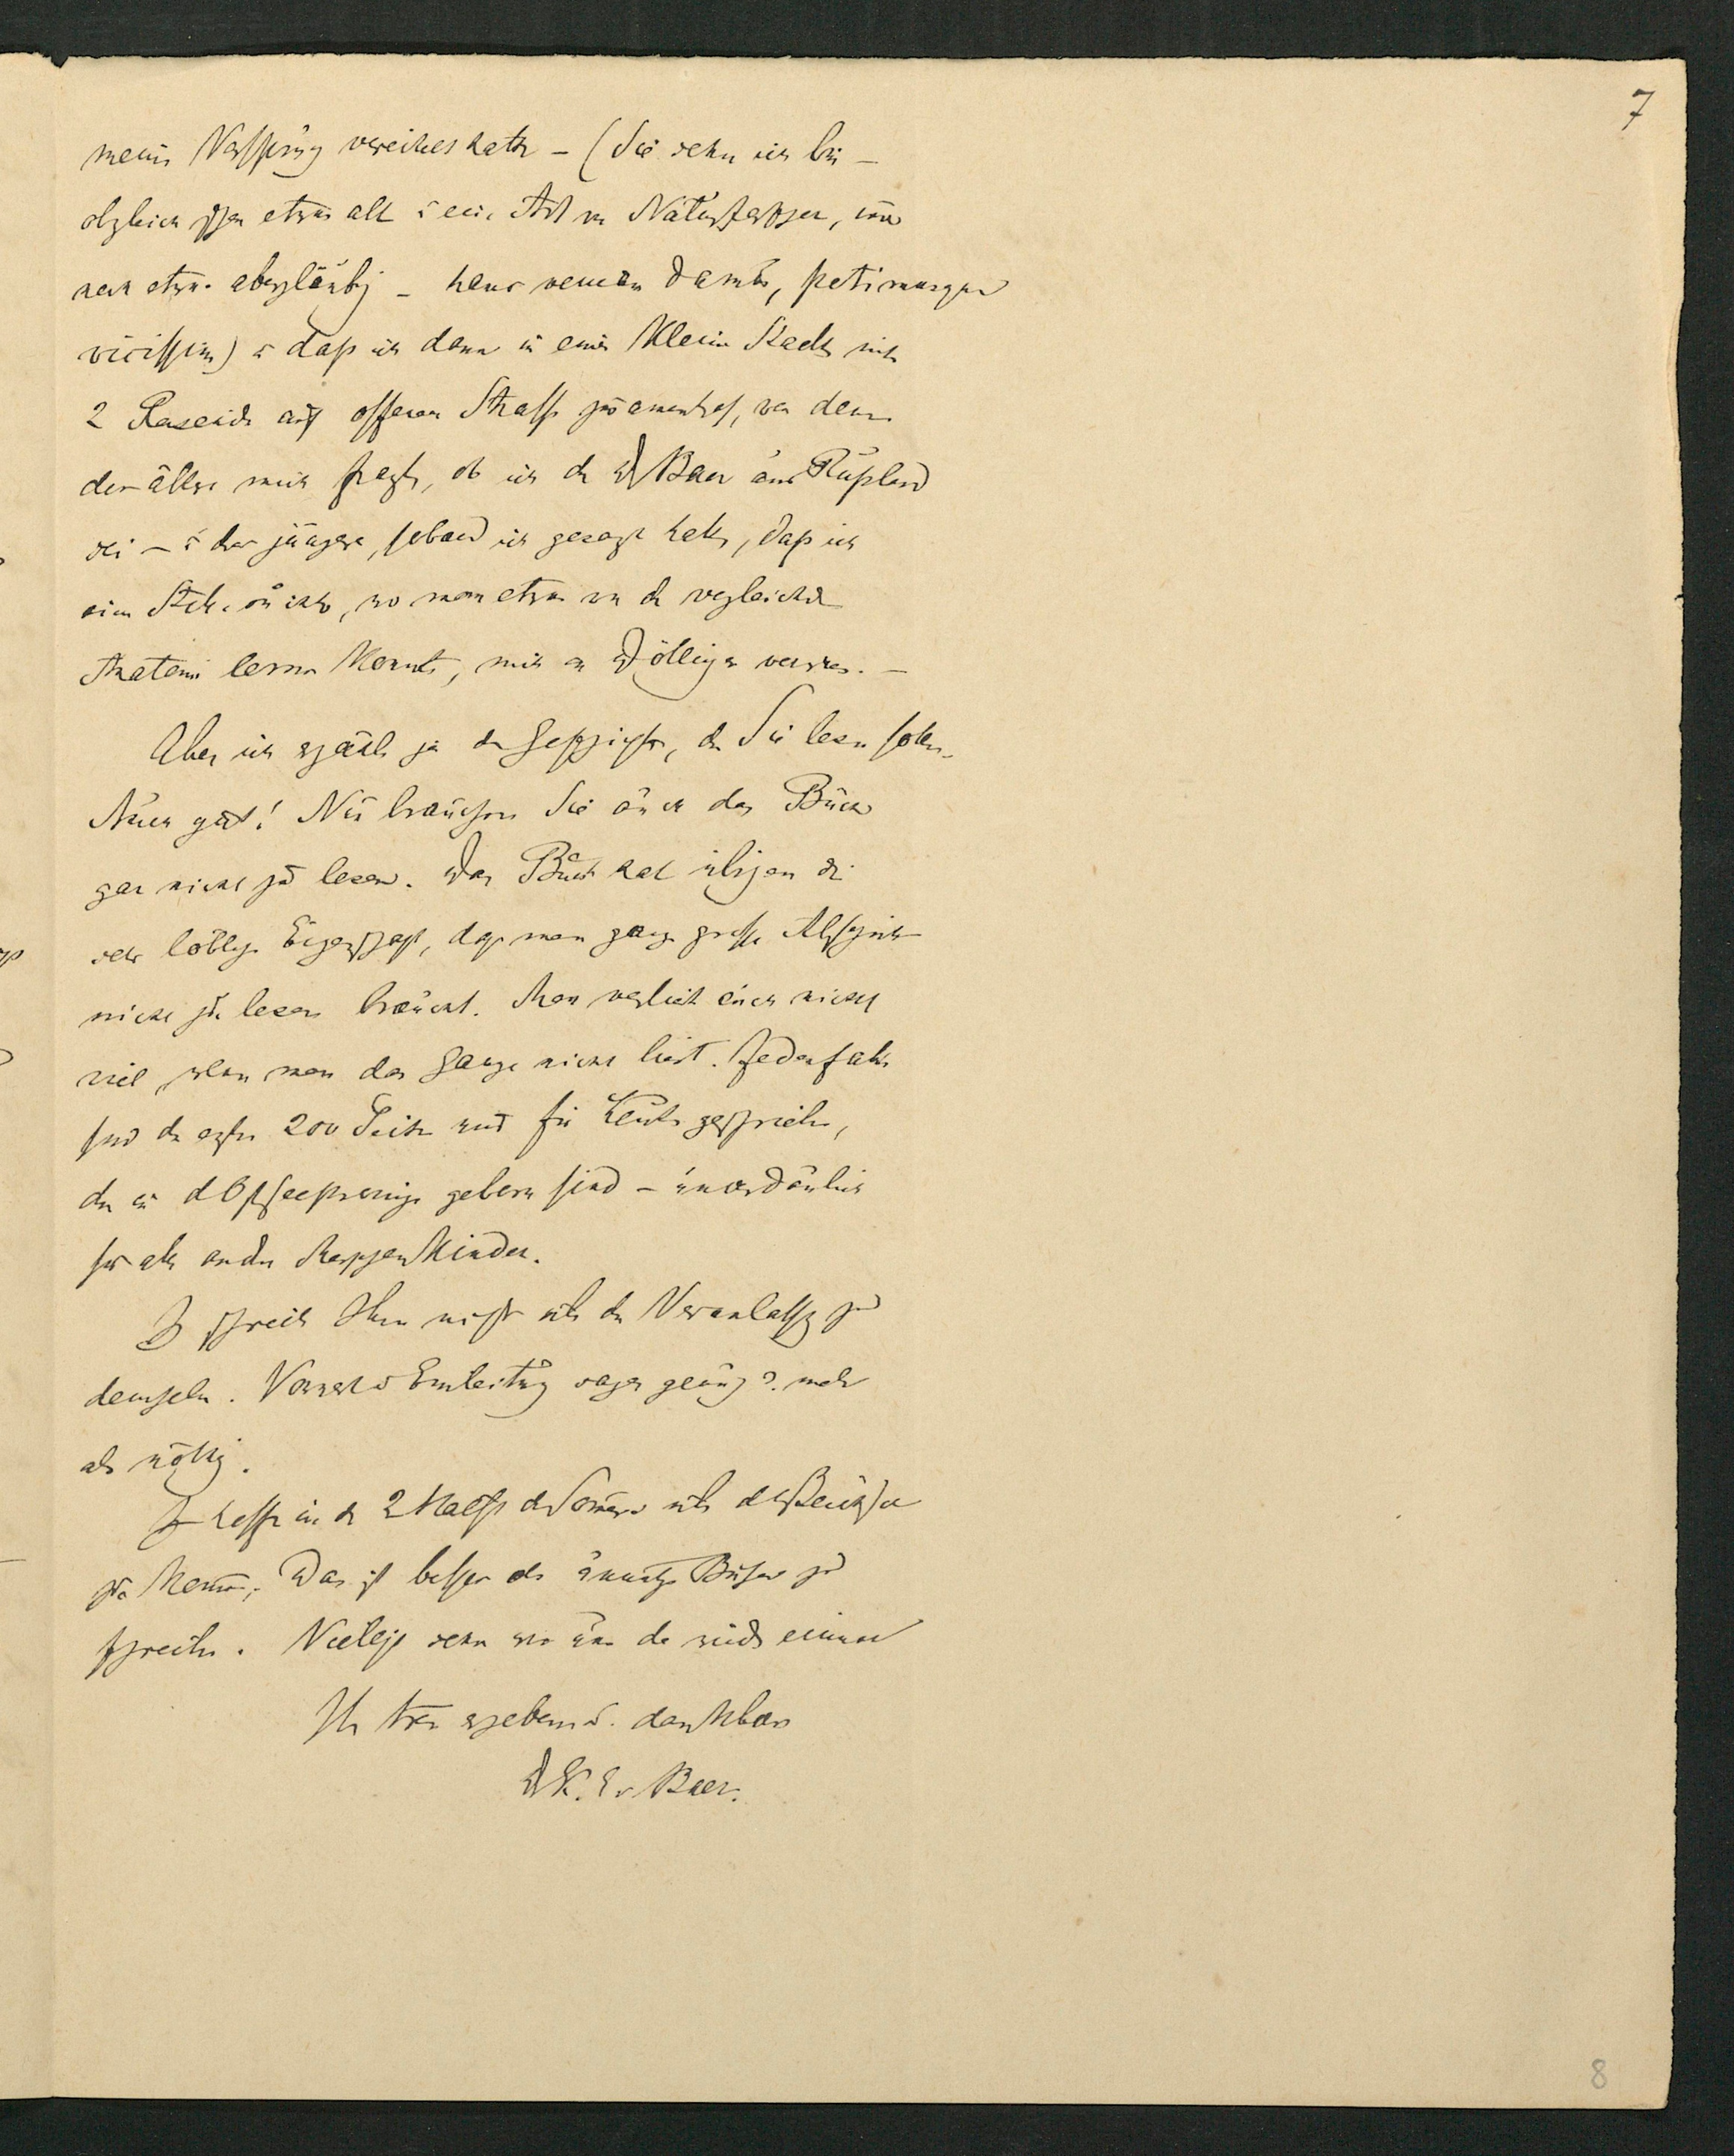 7
meine Vorsehung vereitelt hatte – (Sie sehn ich bin –
obgleich schon etwas alt u eine Art von Naturforscher, immer
noch etwas abergläubig – hanc veniam damus, petimusque
vicissim) u daß ich dann in einer kleinen Stadt mit
2 Reisenden auf offener Straße zusammentraf, von denen
der ältere mich fragte, ob ich der Dr Baer aus Rußland
sei – u der jüngere, sobald ich gesagt hatte, daß ich
eine Stelle suchte, wo man etwas von der vergleichenden
Anatomie lernen könnte, mich an Döllinger verwies. –
Aber ich erzähle ja die Geschichte, die Sie lesen sollen.
Auch gut! Nun brauchen Sie auch das Buch
gar nicht zu lesen. Das Buch hat übrigens die
sehr löbliche Eigenschaft, daß man ganze große Abschnitte
nicht zu lesen braucht. Man verliert auch nicht
viel, wenn man das Ganze nicht liest. Jedenfalls
sind die ersten 200 Seiten nur für Leute geschrieben,
die in d Ostseeprovinzen geboren sind – unverdaulich
für alle andern Menschenkinder.
Ich schreibe Ihnen nichts über die Veranlassung zu
demselben. Vorwort u Einleitung sagen genug u. mehr
als nöthig.
Ich hoffe in der 2 Hälfte des Sommers nach Deutschland
zu kommen. Das ist besser als unnütze Bücher zu
schreiben. Vielleicht sehn wir uns da wieder einmal
Ihr treu ergebener u. dankbarer
Dr K. E v Baer.
8